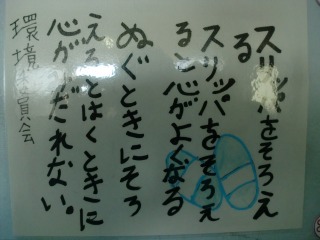 スリッパをそろえ
る
スリッパをそろえ
ると心がよくなる
ぬぐときにそろ
えるとはくときに
心がみだれない。
環境委員会